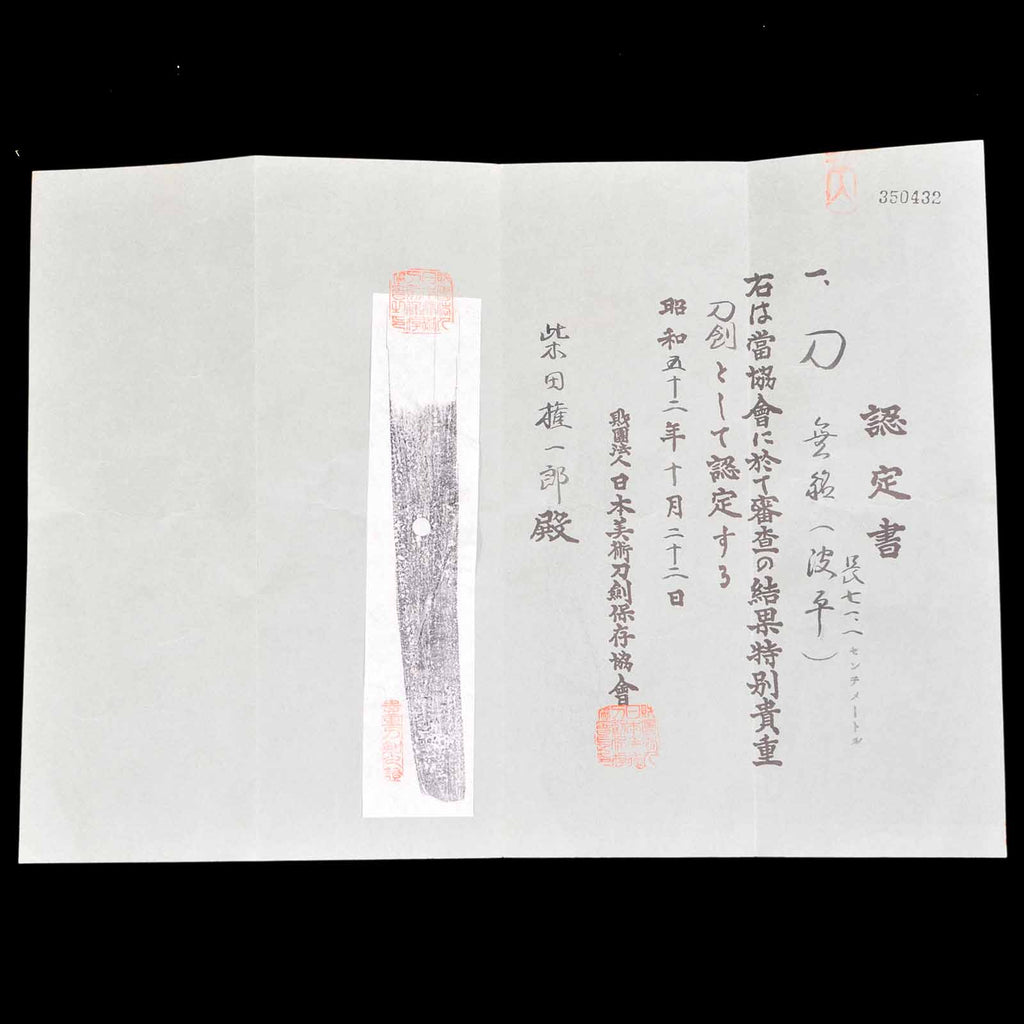 350432
認定書
一、刀 無銘（波平）
長七一、八センチメートル
右は當協會に於て審査の結果特別貴重
刀剣として認定する
昭和五十二年十月二十二日
財團法人日本美術刀劍保存協會
柴田権一郎殿